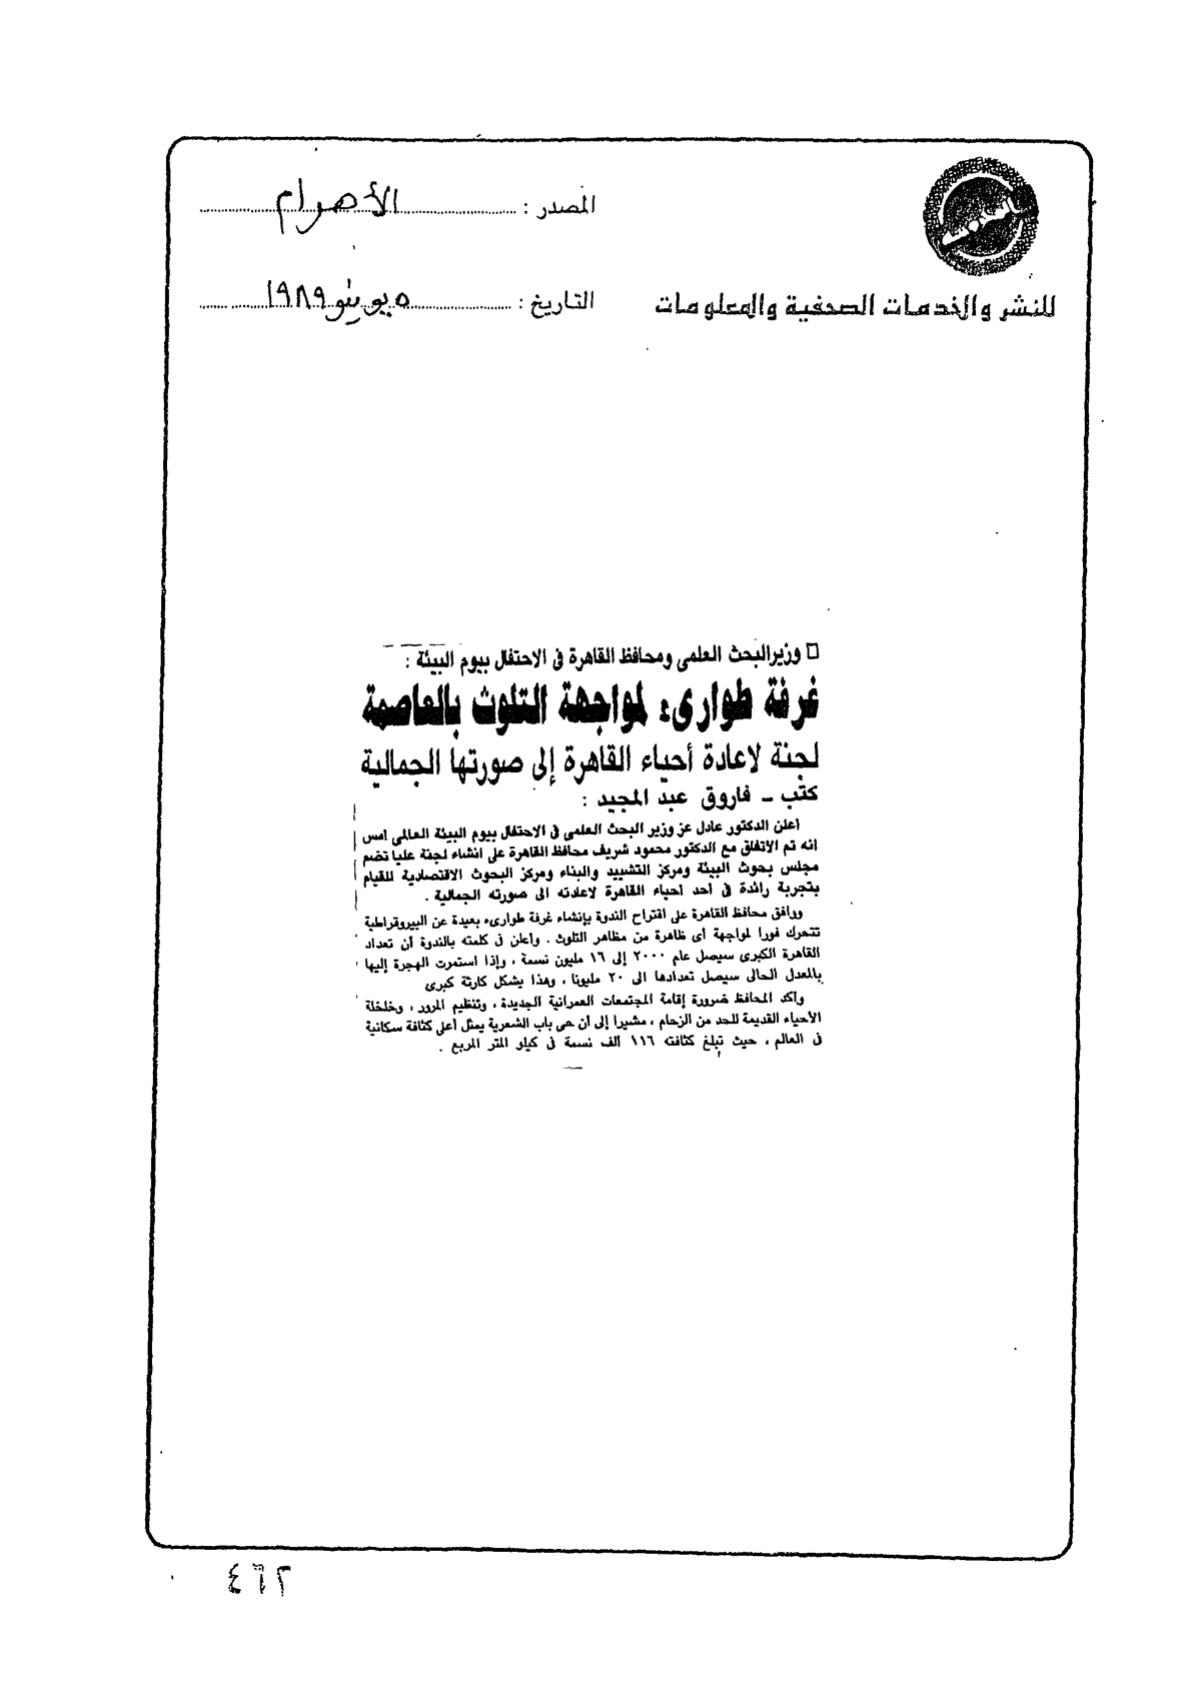 المصدر : الأهرام
للنشر والخدمات الصحفية والمعلومات
التاريخ : ٥ يونيو ١٩٨٩
□ وزير البحث العلمى ومحافظ القاهرة فى الاحتفال بيوم البيئة :
غرفة طوارىء لمواجهة التلوث بالعاصمة
لجنة لاعادة أحياء القاهرة إلى صورتها الجمالية
كتب ـ فاروق عبد المجيد :
أعلن الدكتور عادل عز وزير البحث العلمى فى الاحتفال بيوم البيئة العالمى امس
انه تم الاتفاق مع الدكتور محمود شريف محافظ القاهرة على انشاء لجنة عليا تضم
مجلس بحوث البيئة ومركز التشييد والبناء ومركز البحوث الاقتصادية للقيام
بتجربة رائدة فى أحد أحياء القاهرة لاعادته الى صورته الجمالية .
ووافق محافظ القاهرة على اقتراح الندوة بإنشاء غرفة طوارىء بعيدة عن البيروقراطية
تتحرك فورا لمواجهة أى ظاهرة من مظاهر التلوث . وأعلن فى كلمته بالندوة أن تعداد
القاهرة الكبرى سيصل عام ٢٠٠٠ إلى ١٦ مليون نسمة ، وإذا استمرت الهجرة إليها
بالمعدل الحالى سيصل تعدادها الى ٢٠ مليونا ، وهذا يشكل كارثة كبرى
وأكد المحافظ ضرورة إقامة المجتمعات العمرانية الجديدة ، وتنظيم المرور ، وخلخلة
الأحياء القديمة للحد من الزحام ، مشيرا إلى أن حى باب الشعرية يمثل أعلى كثافة سكانية
فى العالم ، حيث تبلغ كثافته ١١٦ الف نسمة فى كيلو المتر المربع .
٤٦٢